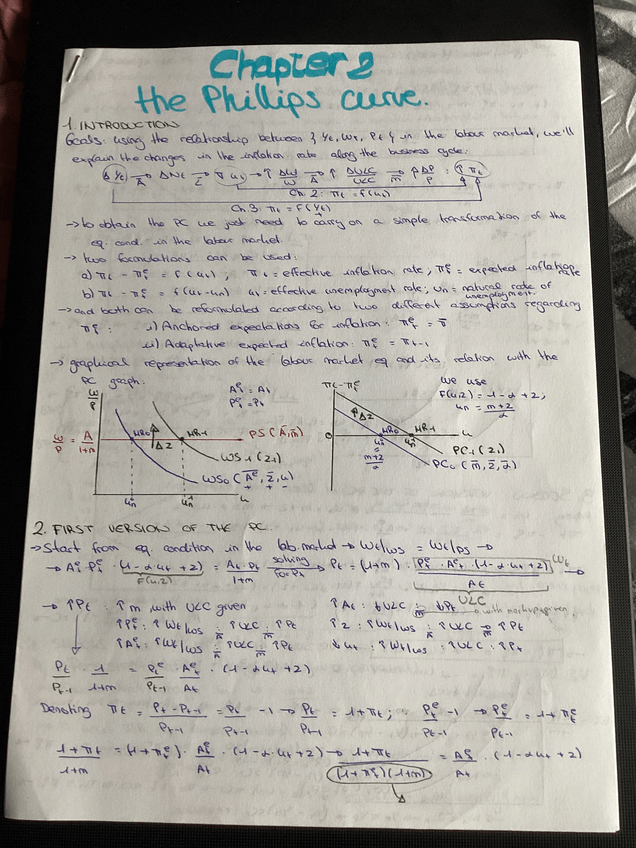 Chapter 2
the Phillips curve.
1. INTRODUCTION
Goals: using the relationship between { Yt, Wt, Pt } in the labour market, we'll
explain the changes in the inflation rate along the business cycle:
Δ Yt → ΔNt → ∇ ut → ↑ ΔW/W → ↑ ΔULC/ULC → ↑ ΔP/P : ↑ πt
Ch 2: πt = f(ut)
Ch 3: πt = f(Yt)
→ to obtain the PC we just need to carry on a simple transformation of the
eq. cond. in the labour market.
→ two formulations can be used:
a) πt - πt^e = f(ut), πt = effective inflation rate, πt^e = expected inflation rate
b) πt - πt^e = f(ut - un) ut = effective unemployment rate; un = natural rate of unemployment.
→ and both can be reformulated according to two different assumptions regarding
πt^e: i) Anchored expectations for inflation: πt^e = π̄
ii) Adaptative expected inflation: πt^e = πt-1
→ graphical representation of the labour market eq and its relation with the
PC graph:
W/P
At^e = At
Pt^e = Pt
W/P = A/(1+m)
PS (Ā, m̄)
Δz
WS1 (z1)
WS0 (A^e, z̄, u)
+ + -
un
un
u
πt - πt^e
we use
F(u,z) = 1 - α + z;
un = (m+z)/α
Δz
0
un = (m+z)/α
un
u
PC1 (z1)
PC0 (m̄, z̄, ᾱ)
2. FIRST VERSION OF THE PC
→ Start from eq. condition in the lab. market → Wt/ws = Wt/ps →
→ At^e · Pt^e · (1 - αut + z) = At · Pt/(1+m) solving for Pt → Pt = (1+m) · Pt^e · At^e · (1 - αut + z)/At Wt →
F(u,z)
ULC
→ ↑Pt : ↑ m with ULC given ↑ At : ↓ ULC : ↓Pt with markup given
↑Pt^e : ↑ Wt/ws : ↑ ULC : ↑ Pt ↑ z : ↑ Wt/ws : ↑ ULC → ↑ Pt
↑At^e : ↑ Wt/ws : ↑ ULC : ↑ Pt ↓ ut : ↑ Wt/ws : ↑ ULC : ↑ Pt
Pt/Pt-1 · 1/(1+m) = Pt^e/Pt-1 · At^e/At · (1 - αut + z)
Denoting πt = (Pt - Pt-1)/Pt-1 = Pt/Pt-1 - 1 → Pt/Pt-1 = 1 + πt; Pt^e/Pt-1 - 1 → Pt^e/Pt-1 = 1 + πt^e
(1+πt)/(1+m) = (1+πt^e) · At^e/At · (1 - α·ut + z) → (1+πt)/((1+πt^e)(1+m)) = At^e/At · (1 - αut + z)